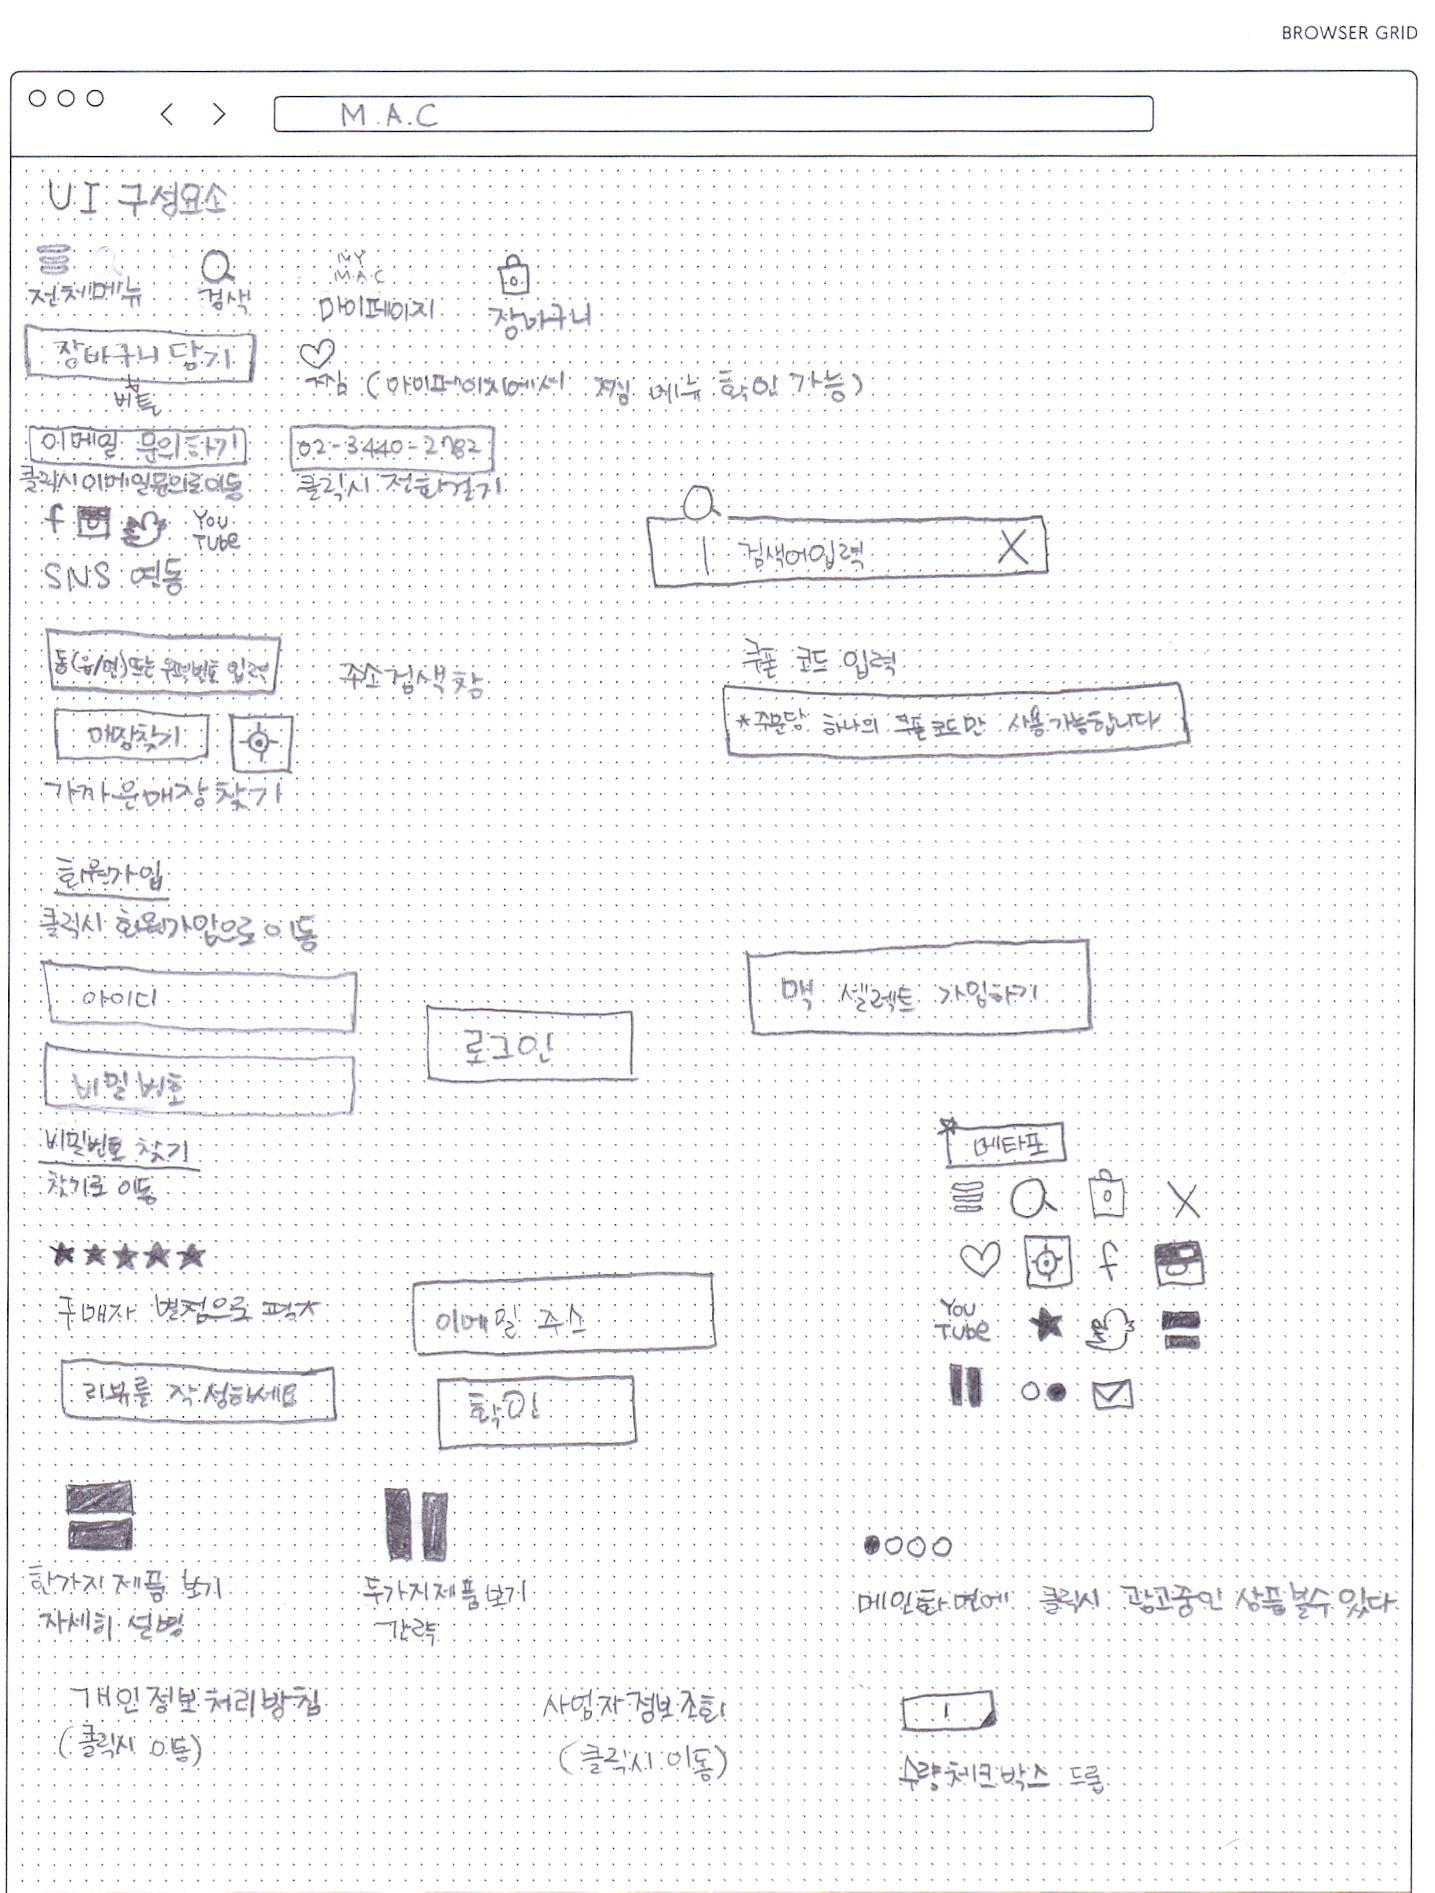 BROWSER GRID
M.A.C
UI 구성요소
전체메뉴
검색
MY
M.A.C
마이페이지
장바구니
장바구니 담기
버튼
찜 (마이페이지에서 찜 메뉴 확인 가능)
이메일 문의하기
클릭시 이메일문의로이동
02-3440-2782
클릭시 전화걸기
f
You
Tube
SNS 연동
검색어입력
X
동(읍/면)또는 우편번호 입력
주소검색창
매장찾기
가까운매장찾기
쿠폰 코드 입력
*주문당 하나의 쿠폰코드만 사용가능합니다
회원가입
클릭시 회원가입으로 이동
아이디
비밀번호
로그인
맥 셀렉트 가입하기
비밀번호 찾기
찾기로 이동
*메타포
X
f
You
Tube
구매자 별점으로 평가
이메일 주소
리뷰를 작성하세요
확인
한가지 제품 보기
자세히 설명
두가지제품보기
간략
메인화면에 클릭시 광고중인 상품볼수있다
개인정보처리방침
(클릭시 이동)
사업자정보조회
(클릭시 이동)
1
수량체크박스 드롭